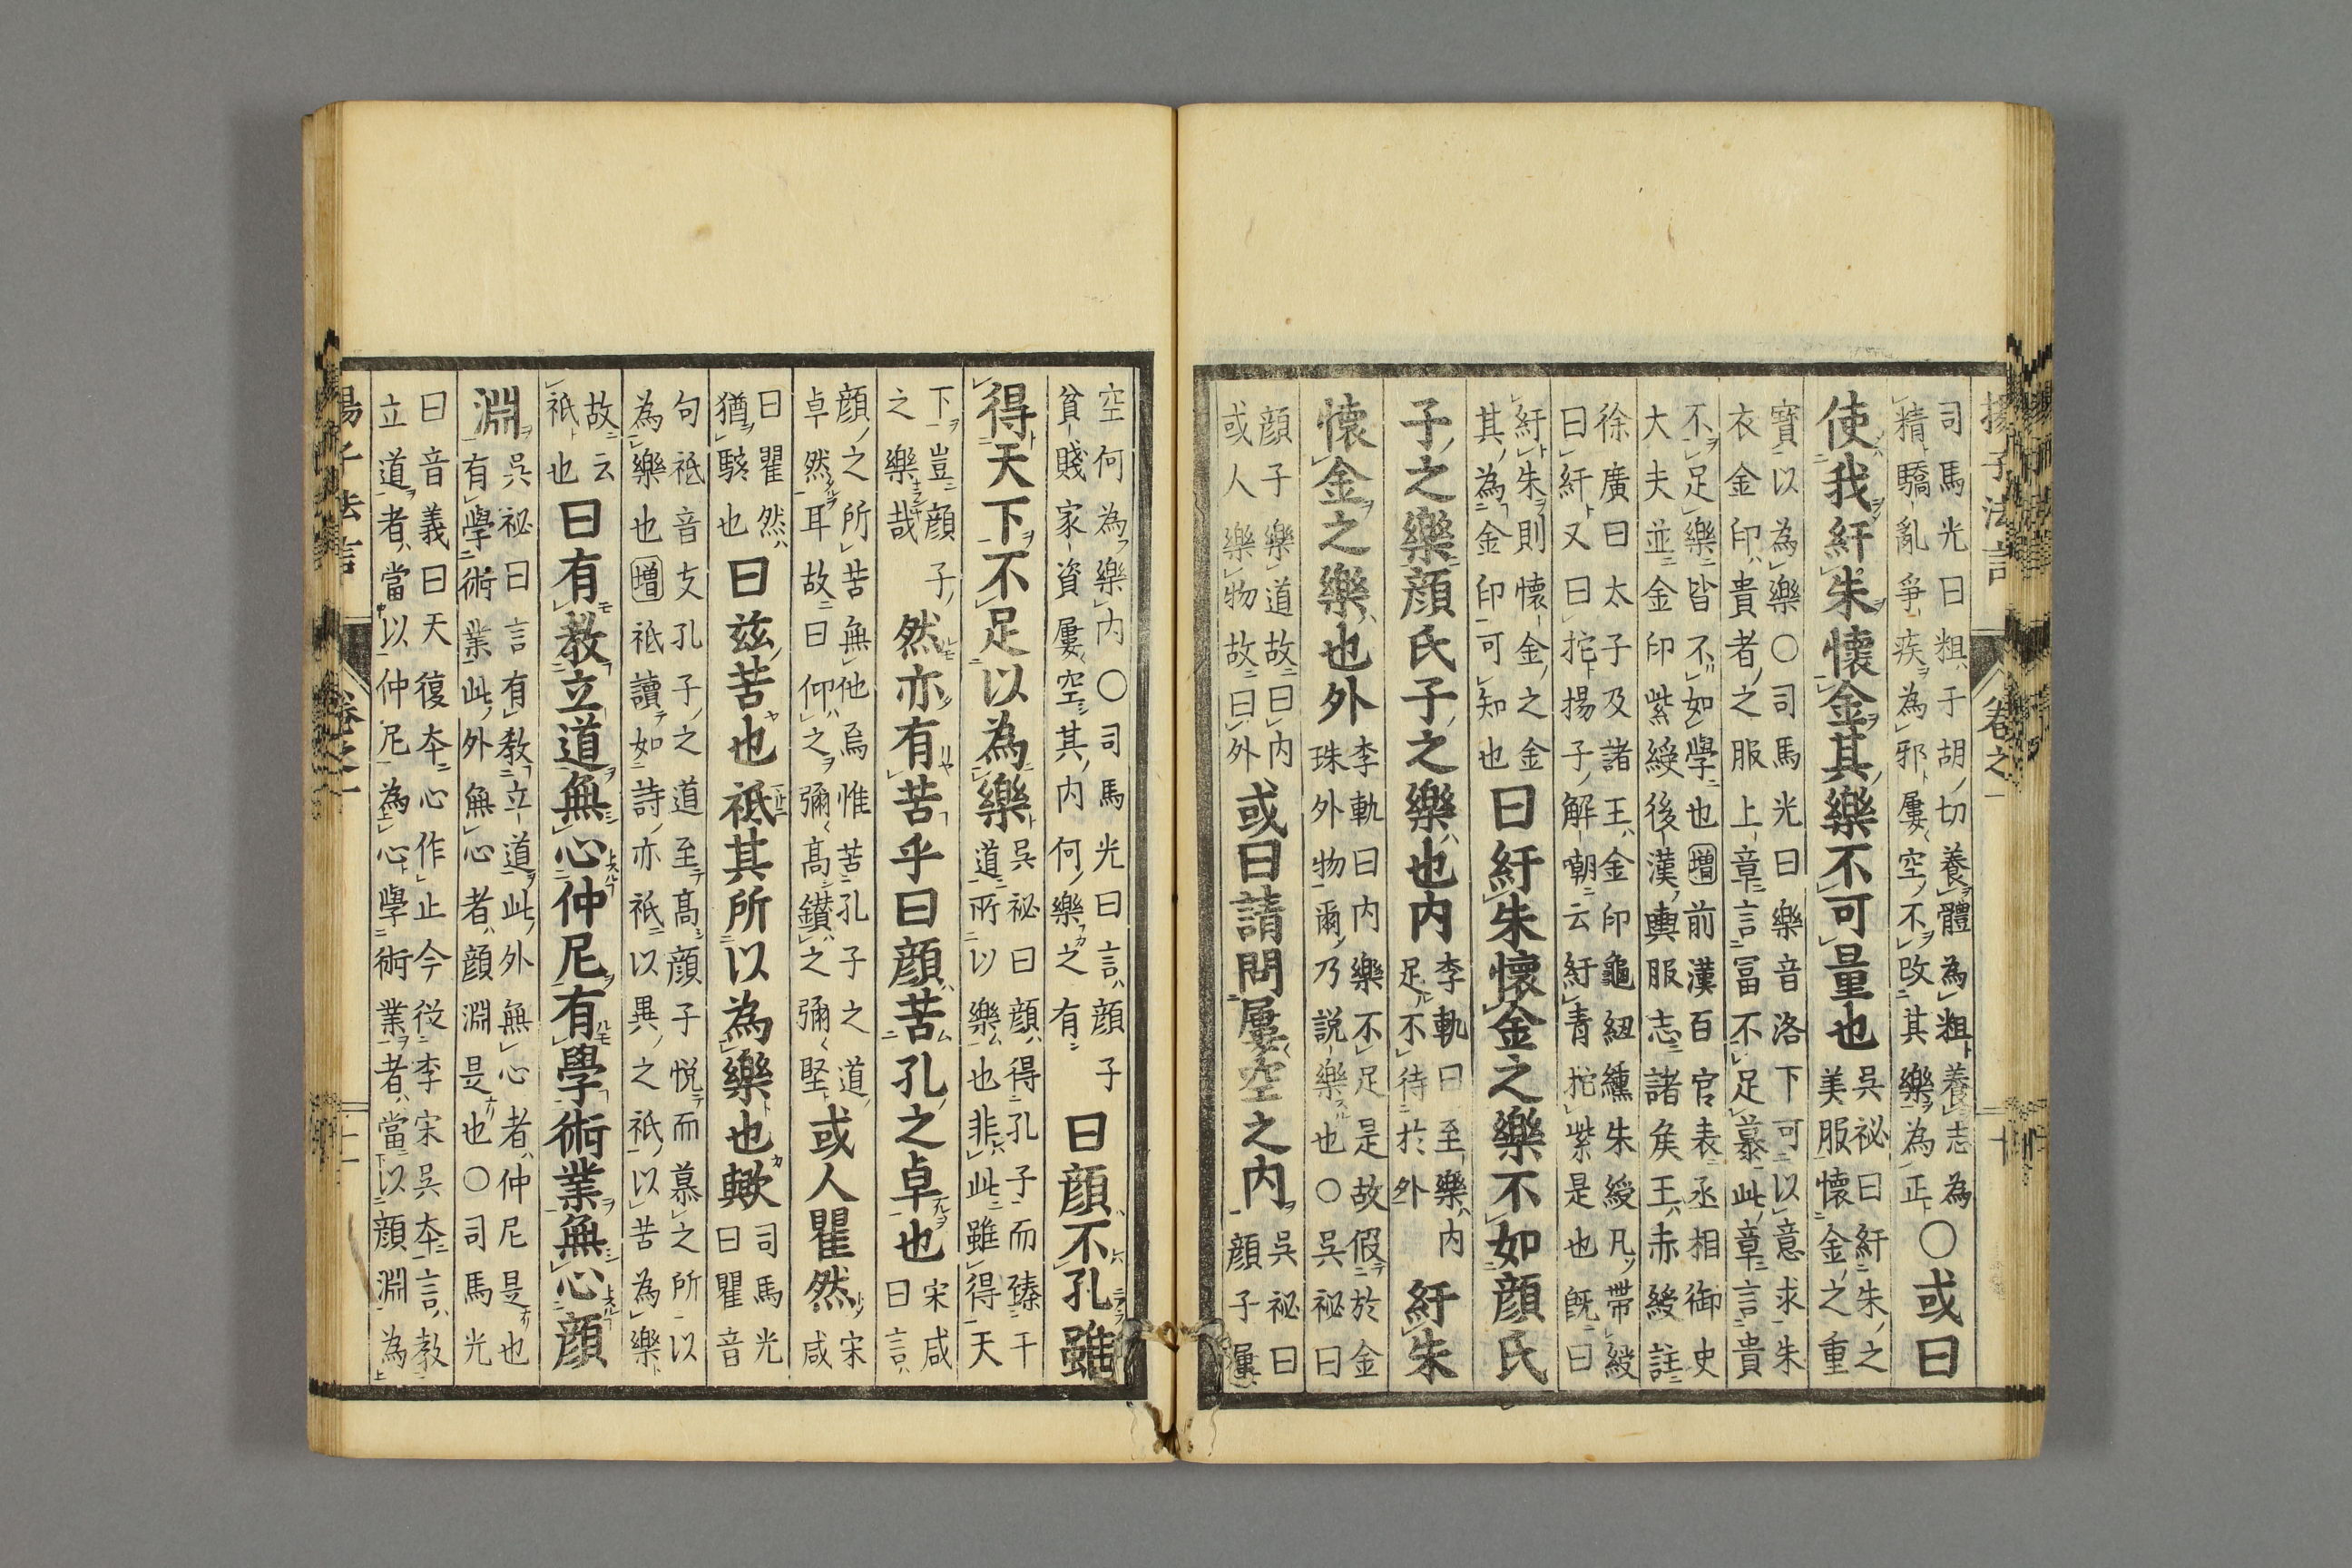 揚子法言 卷之一 十
司馬光曰粗子胡切養體為粗養志為
精驕亂爭疾為邪屢空不改其樂為正
○或曰
使我紆朱懷金其樂不可量也
吳祕曰紆朱之
美服懷金之重
寶以為樂○司馬光曰樂音洛下可以意求朱
衣金印貴者之服上章言冨不足慕此章言貴
不足樂皆不如學也增前漢百官表丞相御史
大夫並金印紫綬後漢輿服志諸矦王赤綬註
徐廣曰太子及諸王金印龜紐纁朱綬凡帶綬
曰紆又曰拕揚子解嘲云紆青拕紫是也旣曰
紆朱則懷金之金
其為金印可知也
曰紆朱懷金之樂不如顔氏
子之樂顔氏子之樂也内
李軌曰至樂内
足不待於外
紆朱
懷金之樂也外
李軌曰内樂不足是故假於金
珠外物爾乃説樂也○吳祕曰
顔子樂道故曰内
或人樂物故曰外
或曰請問屢空之内
吳祕曰
顔子屢
空何為樂内○司馬光曰言顔子
貧賤家資屢空其内何樂之有
曰顔不孔雖
得天下不足以為樂
吳祕曰顔得孔子而臻于
道所以樂也非此雖得天
下豈顔子
之樂哉
然亦有苦乎曰顔苦孔之卓也
宋咸
曰言
顔之所苦無他焉惟苦孔子之道
卓然耳故曰仰之彌高鑚之彌堅
或人瞿然
宋
咸
曰瞿然
猶駭也
曰兹苦也祗其所以為樂也歟
司馬光
曰瞿音
句祗音支孔子之道至高顔子悦而慕之所以
為樂也增祗讀如詩亦祗以異之祗以苦為樂
故云
祗也
曰有教立道無心仲尼有學術業無心顔
淵
吳祕曰言有教立道此外無心者仲尼是也
有學術業此外無心者顔淵是也○司馬光
曰音義曰天復本心作止今從李宋吳本言教
立道者當以仲尼為心學術業者當以顔淵為
揚子法言 卷之一